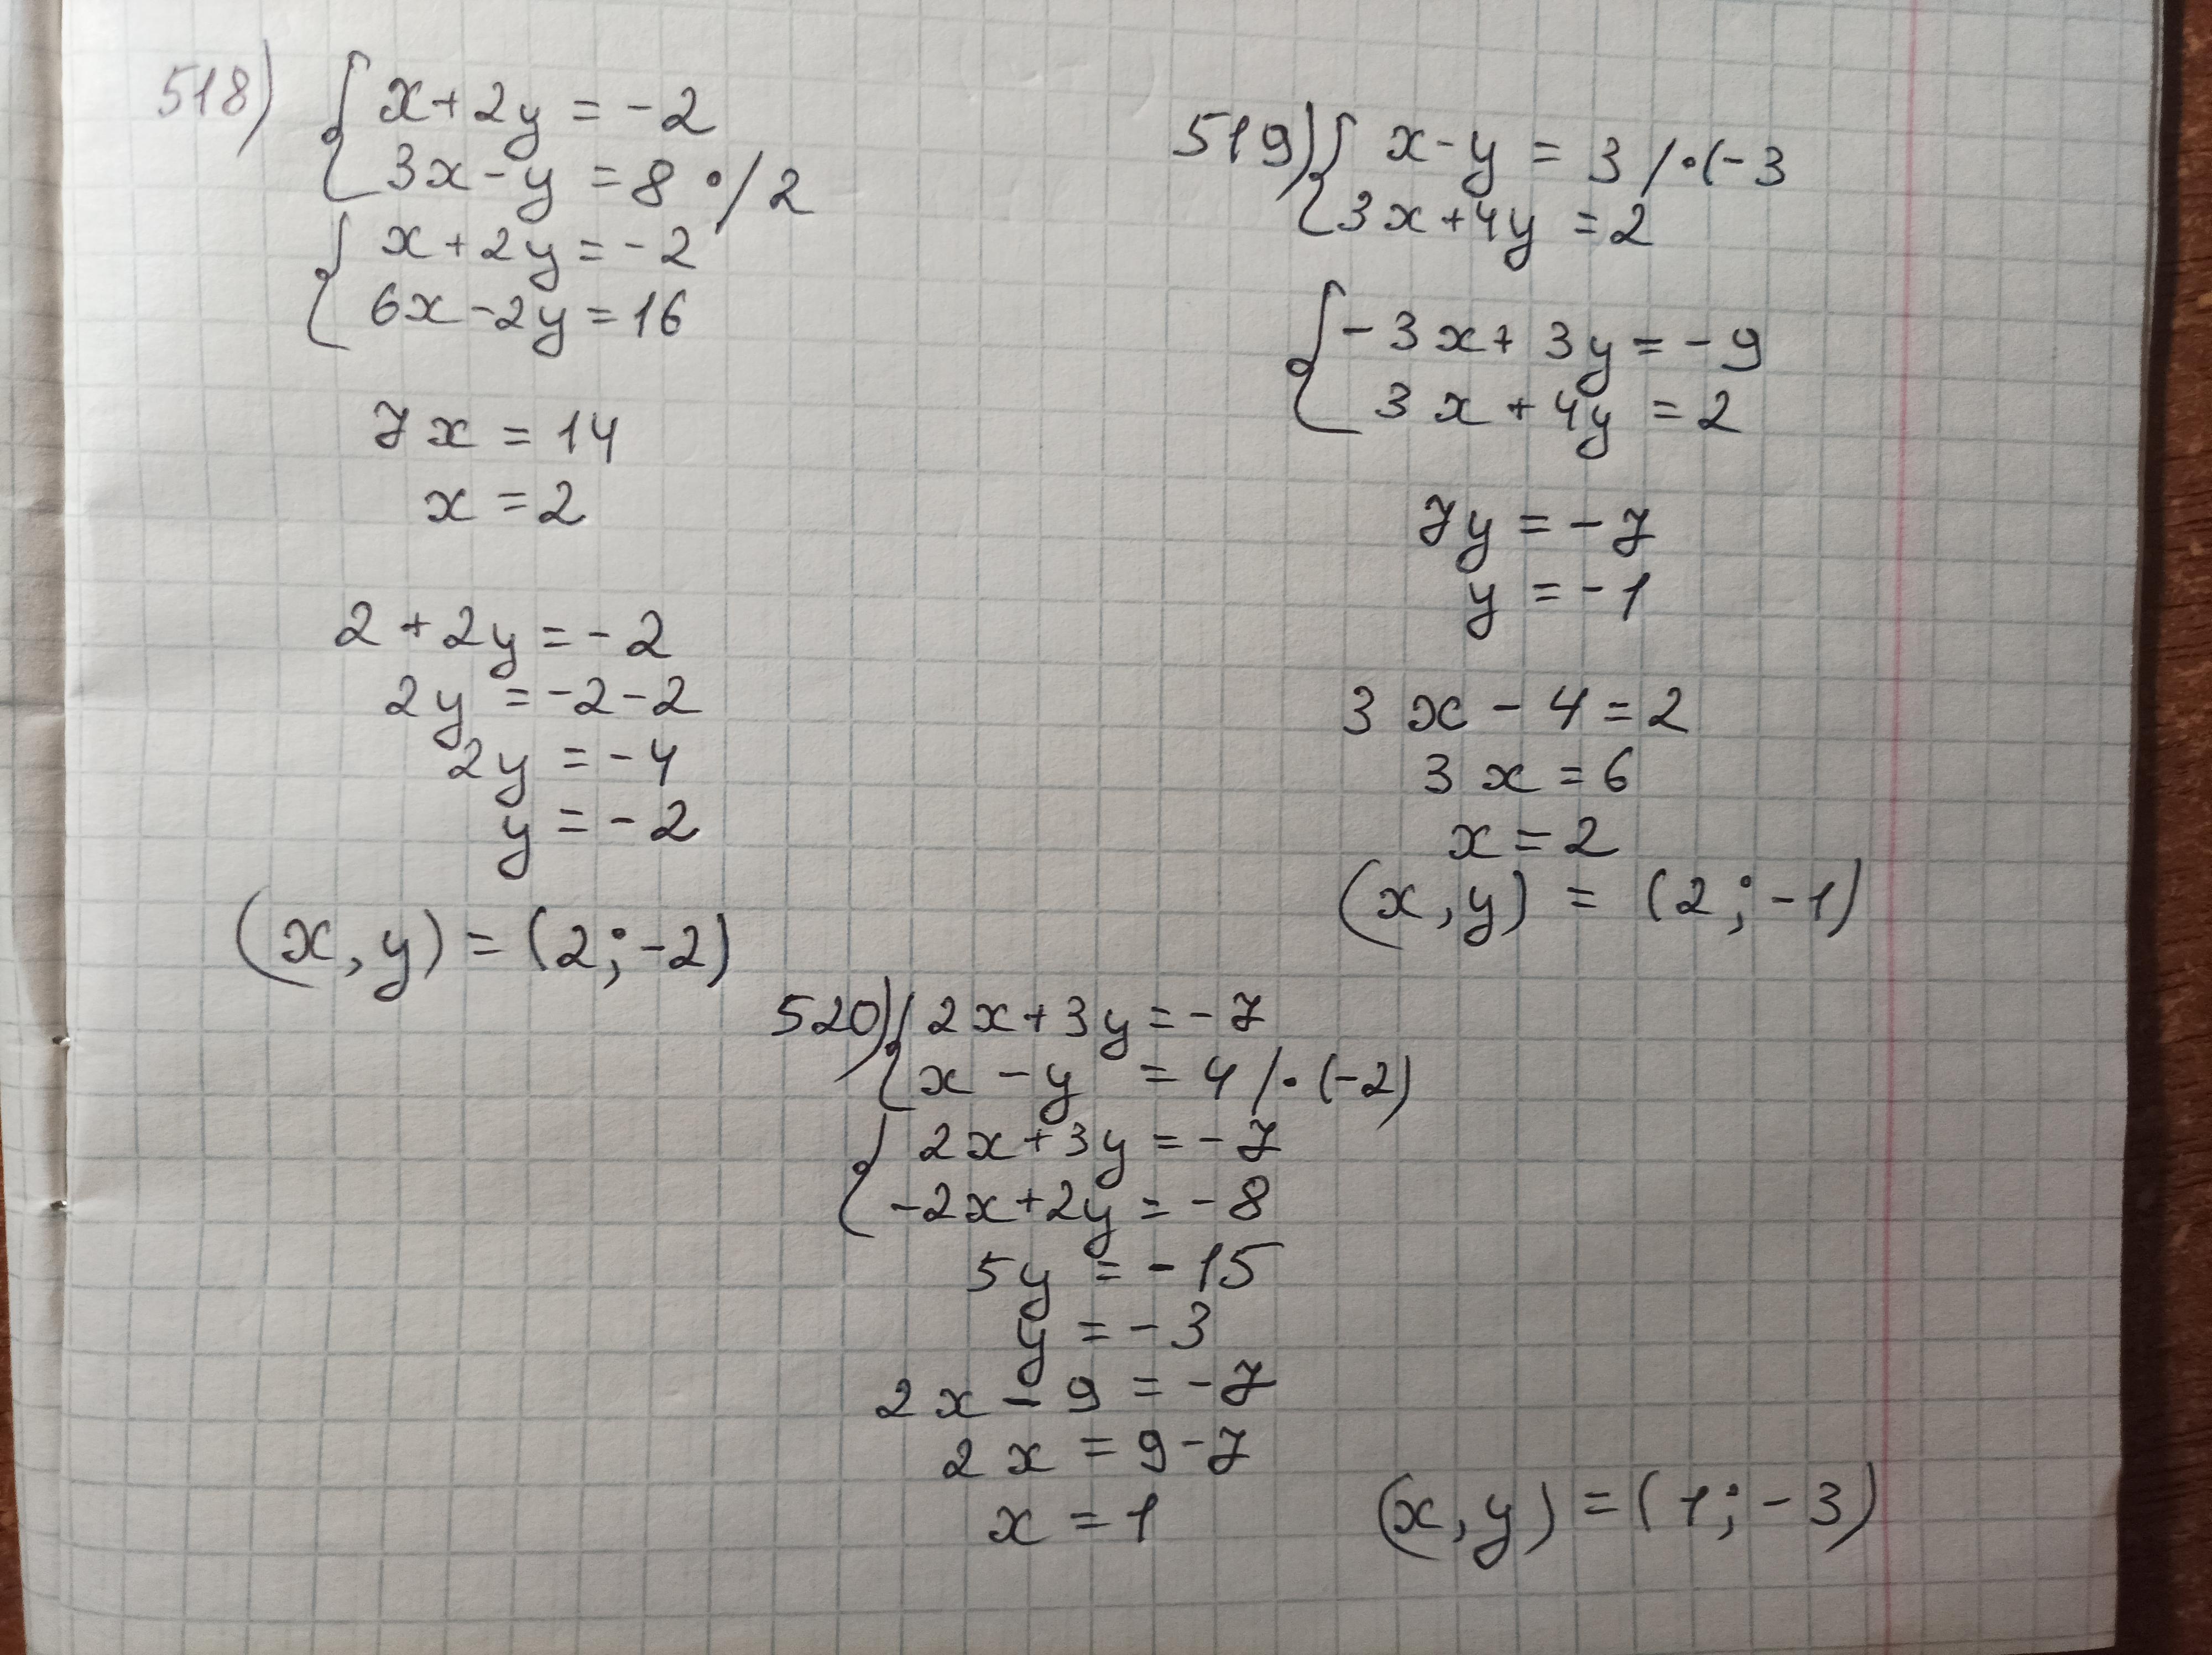 518) x+2y = -2
3x-y = 8 •/2
x+2y = -2
6x-2y = 16
7x = 14
x = 2
2+2y = -2
2y = -2-2
2y = -4
y = -2
(x, y) = (2; -2)
519) x-y = 3 /•(-3
3x+4y = 2
-3x+3y = -9
3x+4y = 2
7y = -7
y = -1
3x-4 = 2
3x = 6
x = 2
(x, y) = (2; -1)
520) 2x+3y = -7
x-y = 4 /•(-2)
2x+3y = -7
-2x+2y = -8
5y = -15
y = -3
2x-9 = -7
2x = 9-7
x = 1
(x, y) = (1; -3)